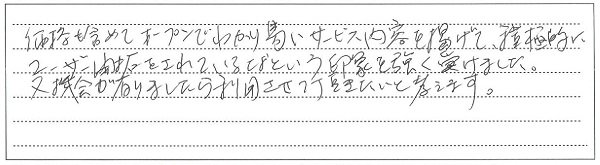 価格も含めてオープンでわかり易いサービス内容を掲げて、積極的に
ユーザー開拓をされているなという印象を強く受けました。
又機会が有りましたら利用させて頂きたいと考えます。